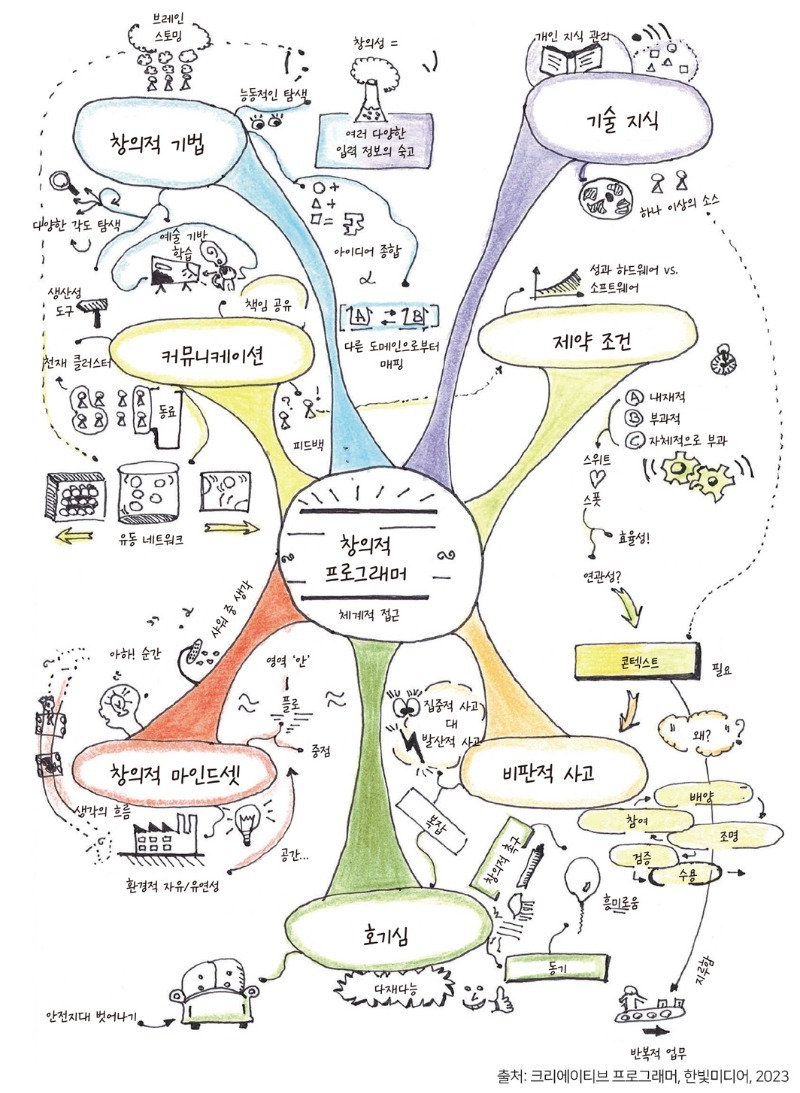 브레인
스토밍
창의적 기법
능동적인 탐색
창의성 =
여러 다양한
입력 정보의 숙고
다양한 각도 탐색
예술 기반
학습
아이디어 종합
A ⇄ B
다른 도메인으로부터
매핑
개인 지식 관리
기술 지식
하나 이상의 소스
생산성
도구
책임 공유
커뮤니케이션
천재 클러스터
동료
피드백
유동 네트워크
성과 하드웨어 vs.
소프트웨어
제약 조건
A 내재적
B 부과적
C 자체적으로 부과
스위트
스폿
효율성!
연관성?
창의적
프로그래머
체계적 접근
샤워 중 생각
아하! 순간
영역 '안'
플로
중점
창의적 마인드셋
생각의 흐름
환경적 자유/유연성
공간...
집중적 사고
대
발산적 사고
비판적 사고
콘텍스트
필요
왜?
?
배양
참여
조명
검증
수용
지루함
반복적 업무
복잡
창의적 촉구
흥미로움
호기심
동기
다재다능
안전지대 벗어나기
출처: 크리에이티브 프로그래머, 한빛미디어, 2023